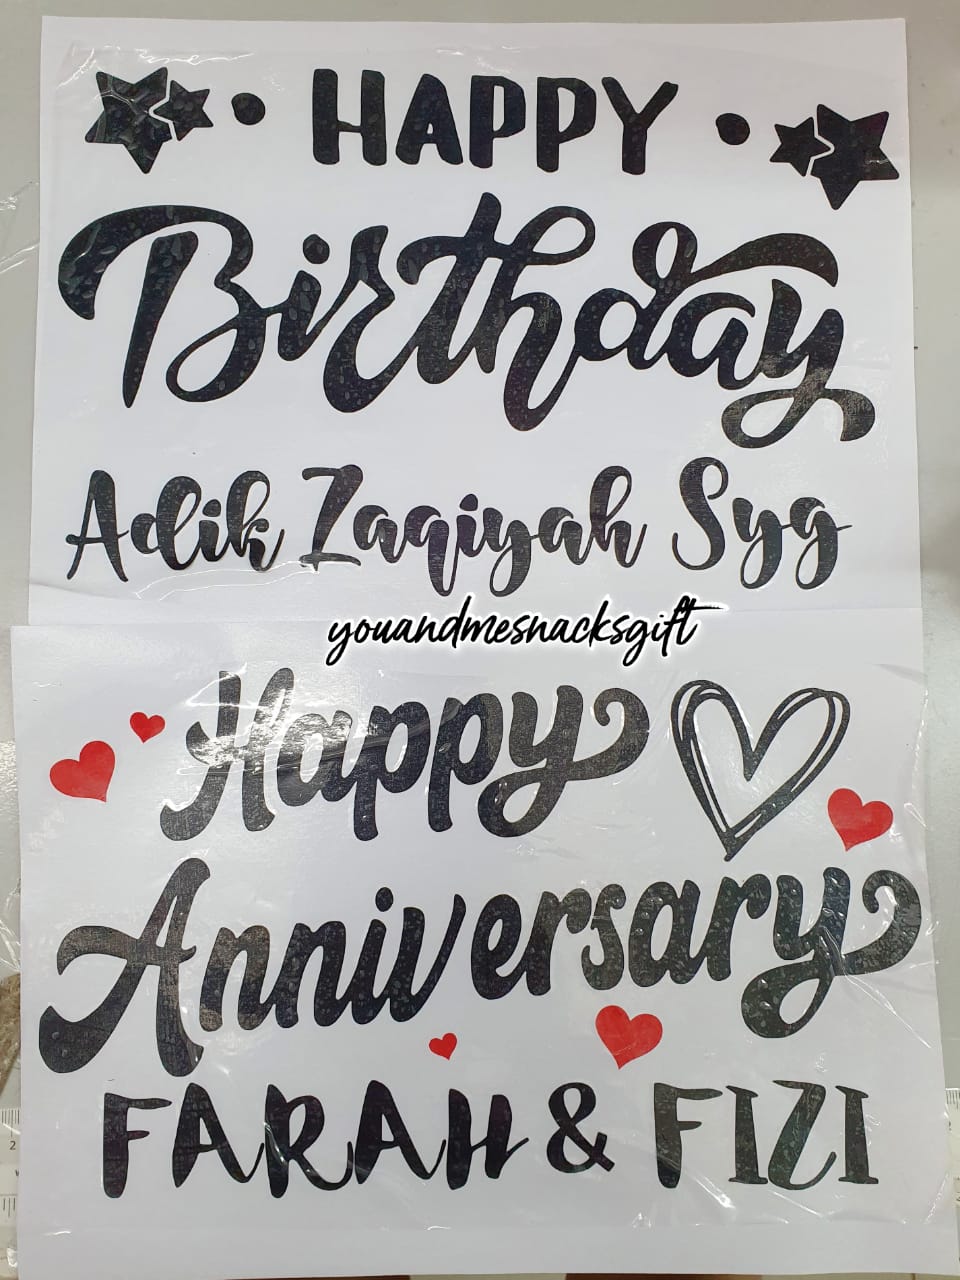 HAPPY
Birthday
Adik Zaqiyah Syg
youandmesnacksgift
Happy
Anniversary
FARAH & FIZI